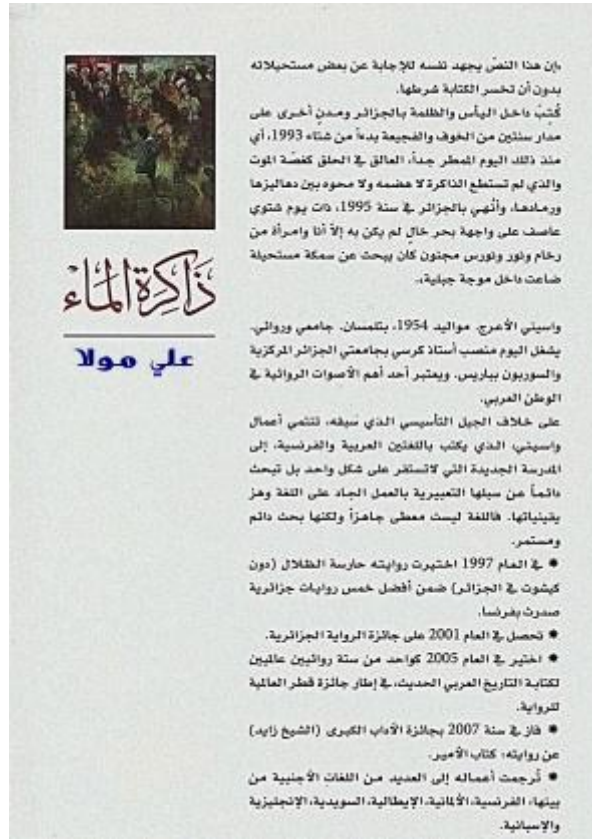 «إن هذا النصّ يجهد نفسه للإجابة عن بعض مستحيلاته
بدون أن تخسر الكتابة شرطها.
كُتِبَ داخل اليأس والظلمة بالجزائر ومدنٍ أخرى على
مدار سنتين من الخوف والفجيعة بدءاً من شتاء 1993، أي
منذ ذلك اليوم الممطر جداً، العالق في الحلق كغصّة الموت
والذي لم تستطع الذاكرة لا هضمه ولا محوه بين دهاليزها
ورمادها، وأنُهي بالجزائر في سنة 1995، ذات يوم شتوي
عاصف على واجهة بحر خالٍ لم يكن به إلاّ أنا وامرأة من
رخام ونور ونورس مجنون كان يبحث عن سمكة مستحيلة
ضاعت داخل موجة جبلية».
ذَاكِرَةُ المَاء
علي مولا
واسيني الأعرج. مواليد 1954، بتلمسان. جامعي وروائي.
يشغل اليوم منصب أستاذ كرسي بجامعتي الجزائر المركزية
والسوربون بباريس. ويعتبر أحد أهم الأصوات الروائية في
الوطن العربي.
على خلاف الجيل التأسيسي الذي سبقه، تنتمي أعمال
واسيني، الذي يكتب باللغتين العربية والفرنسية، إلى
المدرسة الجديدة التي لاتستقر على شكل واحد بل تبحث
دائماً عن سبلها التعبيرية بالعمل الجاد على اللغة وهز
يقينياتها. فاللغة ليست معطى جاهزاً ولكنها بحث دائم
ومستمر.
● في العام 1997 اختيرت روايته حارسة الظلال (دون
كيشوت في الجزائر) ضمن أفضل خمس روايات جزائرية
صدرت بفرنسا.
● تحصل في العام 2001 على جائزة الرواية الجزائرية.
● اختير في العام 2005 كواحد من ستة روائيين عالميين
لكتابة التاريخ العربي الحديث، في إطار جائزة قطر العالمية
للرواية.
● فاز في سنة 2007 بجائزة الآداب الكبرى (الشيخ زايد)
عن روايته: كتاب الأمير.
● تُرجمت أعماله إلى العديد من اللغات الأجنبية من
بينها: الفرنسية، الألمانية، الإيطالية، السويدية، الإنجليزية
والإسبانية.